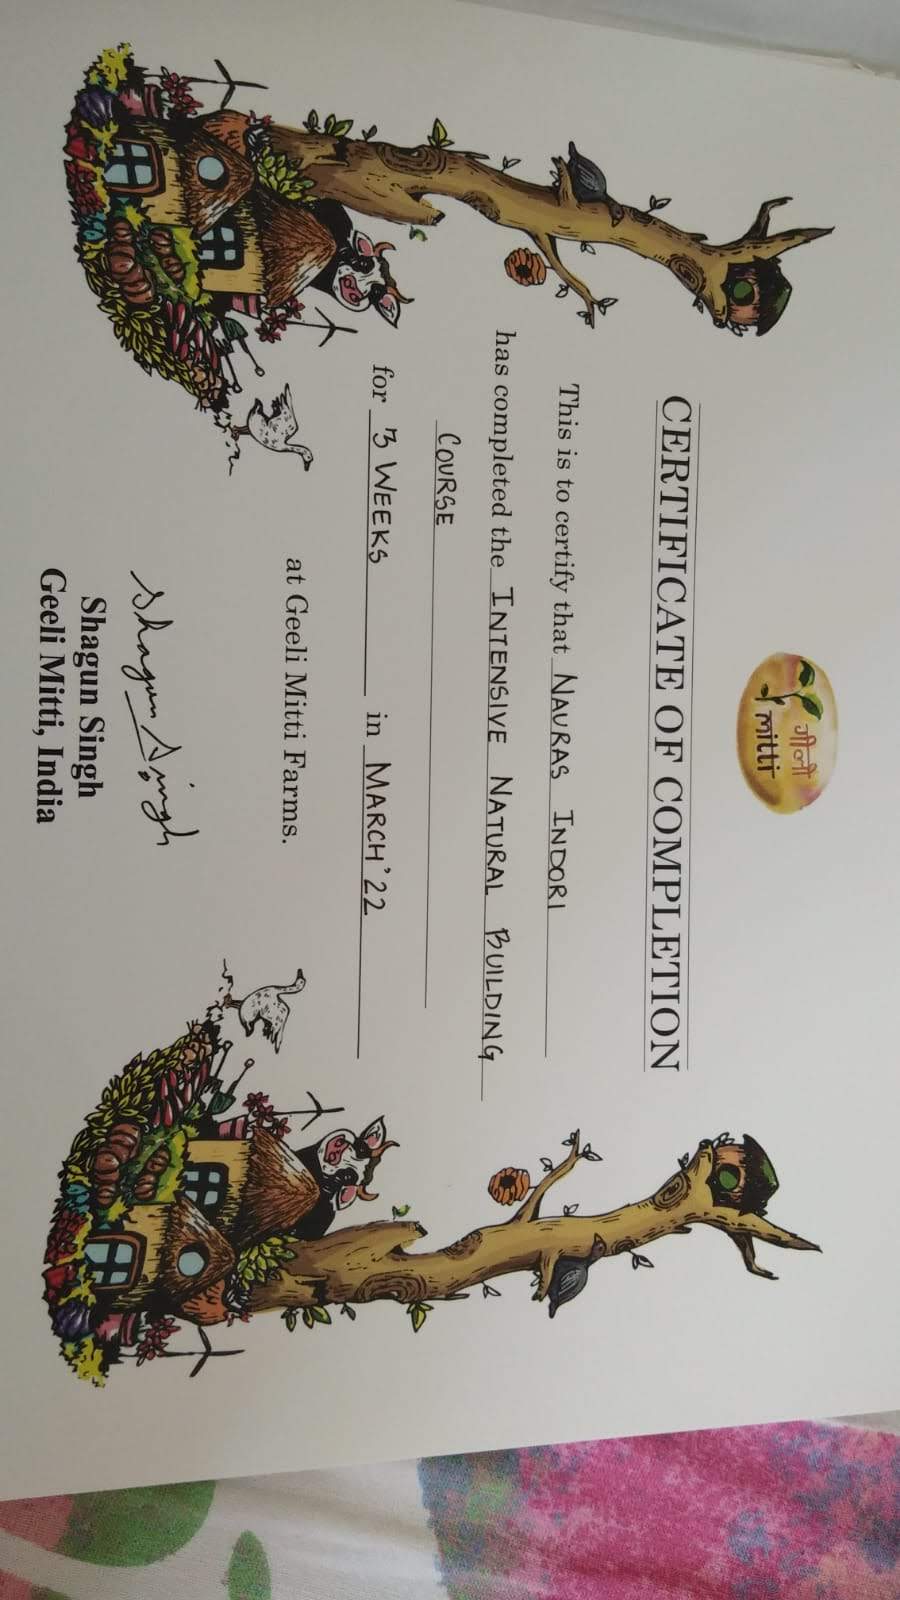 गीली
mitti
CERTIFICATE OF COMPLETION
This is to certify that NAURAS INDORI
has completed the INTENSIVE NATURAL BUILDING
COURSE
for 3 WEEKS in MARCH'22
at Geeli Mitti Farms.
Shagun Singh
Shagun Singh
Geeli Mitti, India